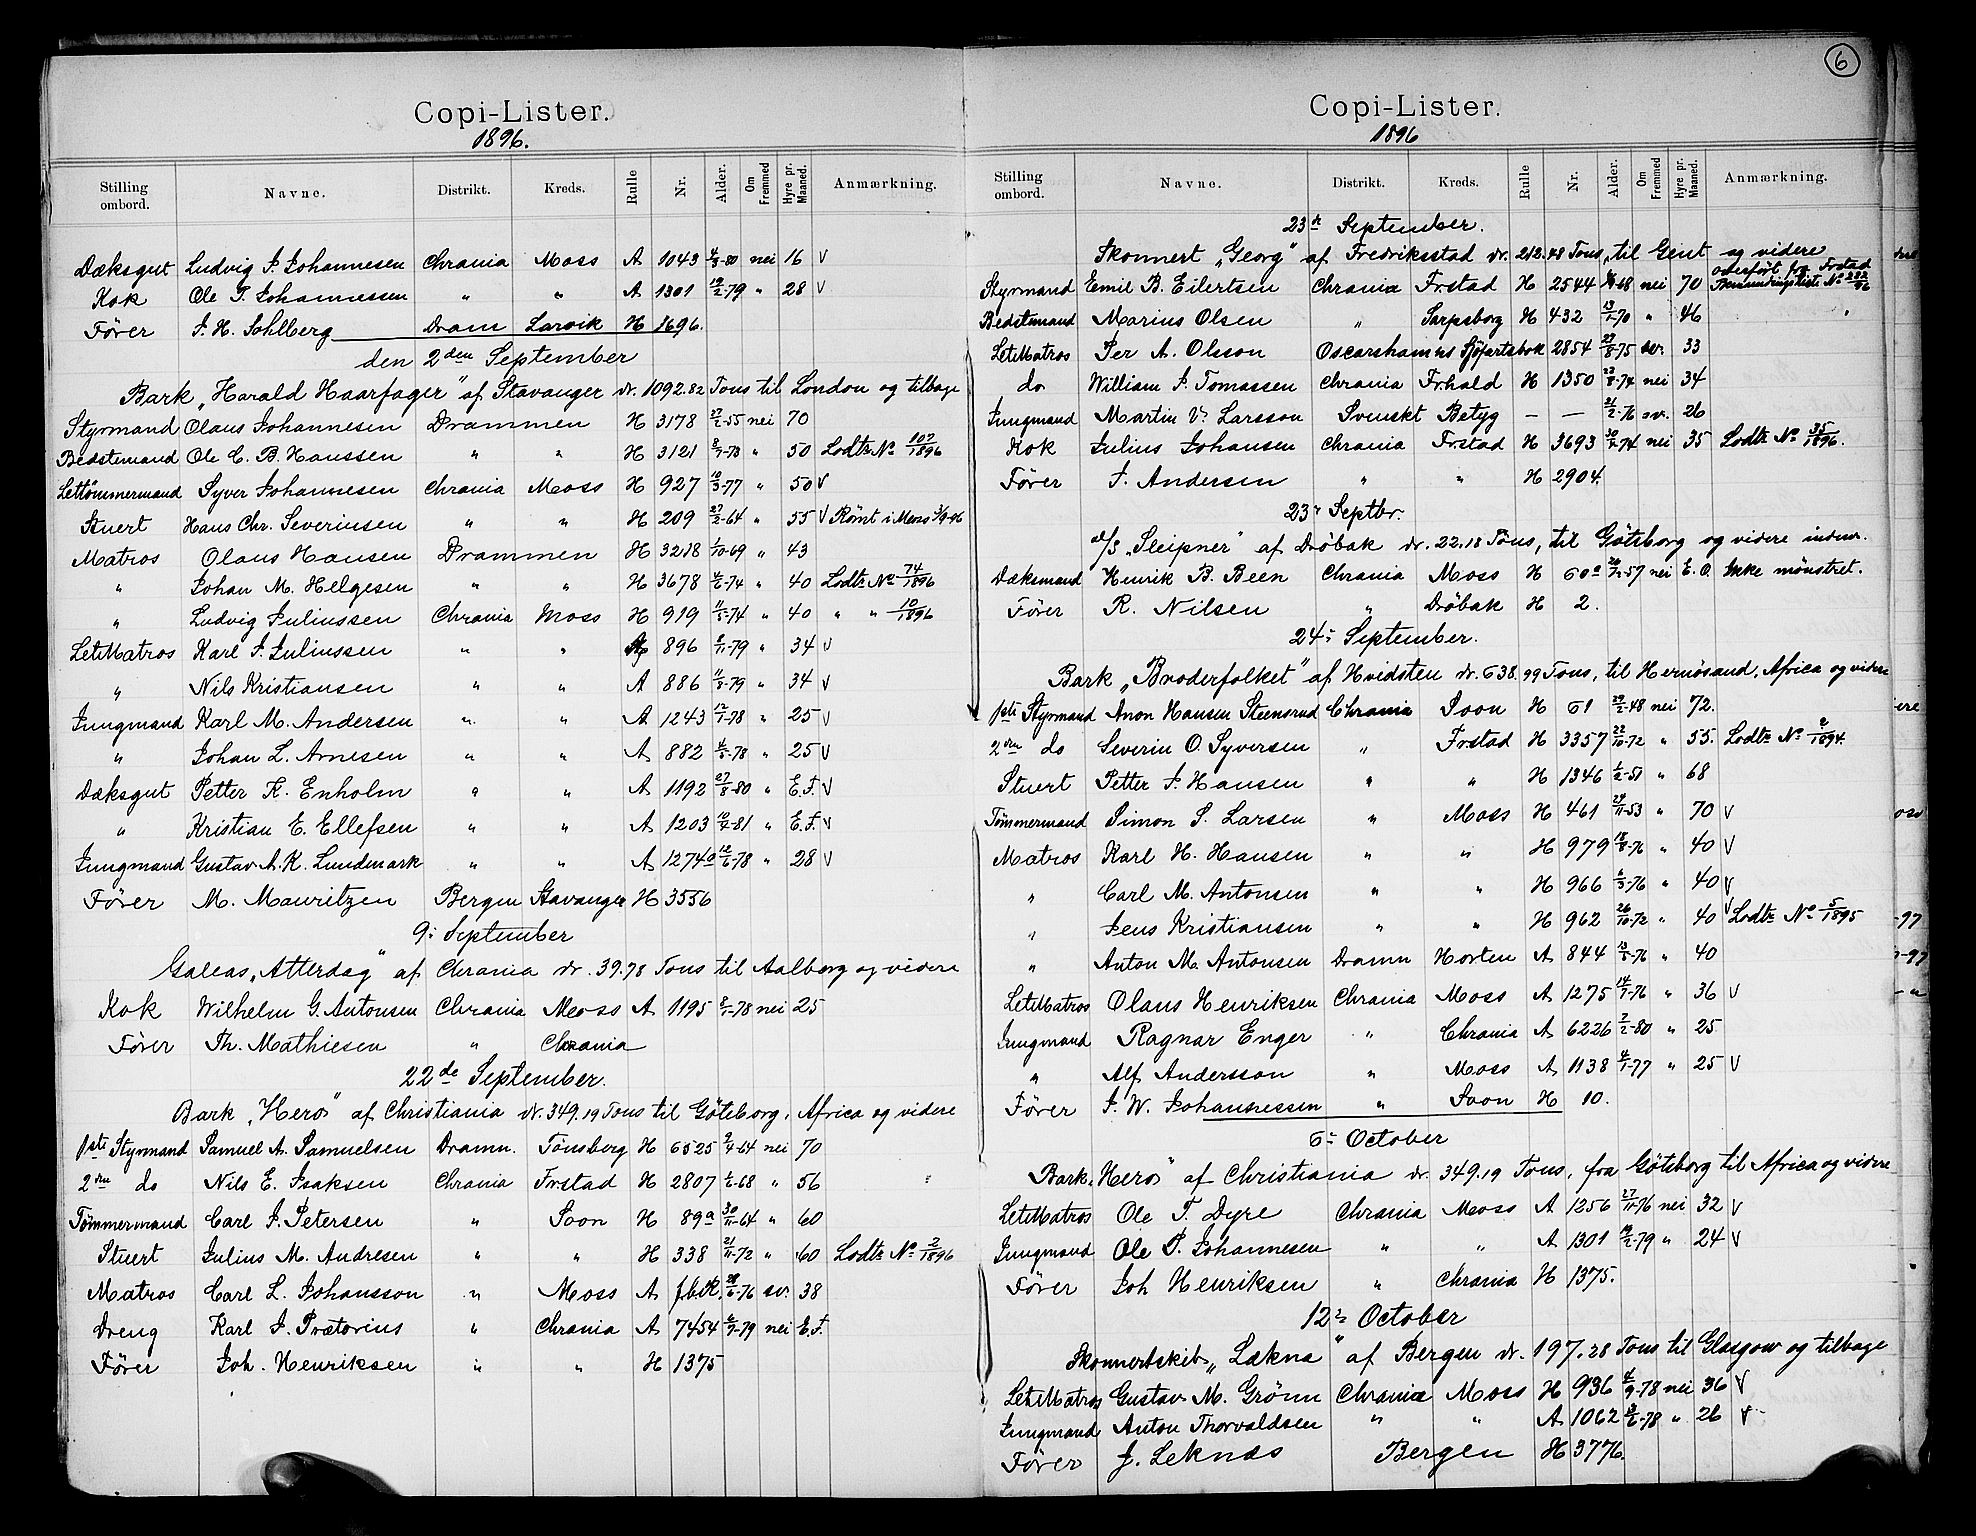 Copi-Lister.
1896.
Stilling ombord. Navne. Distrikt. Kreds. Rulle Nr. Alder. Om Fremmed Hyre pr. Maaned. Anmærkning.
Dæksgut Ludvig J. Johannesen Chrania Moss A 1043 nei 16 V
Kok Ole T. Johannessen " " A 1301 12/2-79 " 28 V
Fører J. H. Sohlberg Dram Larvik H 1696.
den 2den September
Bark "Harald Haarfager" af Stavanger dr. 1092.82 Tons til London og tilbage
Styrmand Olaus Johannesen Drammen H 3178 27/2-55 nei 70
Bedstemand Ole C. B. Hanssen " " H 3121 8/7-73 " 50 Lodts No 107/1896
Lettømmermand Syver Johannesen Chrania Moss H 927 10/3-77 " 50 V
Stuert Hans Chr. Severinsen " " H 209 27/2-64 " 55 V Rømt i Moss 3/9-96
Matros Olaus Hansen Drammen H 3218 1/10-69 " 43
" Johan M. Helgesen " " H 3678 4/6-74 " 40 Lodts No 74/1896
" Ludvig Juliussen Chrania Moss H 919 11/5-74 " 40 " " 10/1896
LetMatros Karl J. Juliussen " " 896 8/11-79 " 34 V
" Nils Kristiansen " " A 886 11/8-79 " 34 V
Jungmand Karl M. Andersen " " A 1243 12/1-78 " 25 V
" Johan L. Arnesen " " A 882 4/5-78 " 25 V
Dæksgut Petter K. Enholm " " A 1192 27/8-80 " E.F. V
" Kristian E. Ellefsen " " A 1203 -81 " E.F. V
Jungmand Gustav A. K. Lundmark " " A 1274a 12/6-78 " 28 V
Fører M. Mauritzen Bergen Stavanger H 3556
9: September
Galeas "Atterdag" af Chrania dr. 39.78 Tons til Aalborg og videre
Kok Wilhelm G. Antonsen Chrania Moss A 1195 8/1-78 nei 25
Fører Th. Mathiesen " Chrania
22de September.
Bark "Heros" af Christiania dr. 349.19 Tons til Göteborg, Africa og videre
1ste Styrmand Samuel A. Samuelsen Dramn. Tønsberg H 6525 9/4-64 nei 70
2den do Nils E. Isaksen Chrania Frstad H 2807 -68 " 56
Tømmermand Carl J. Petersen " Soon H 89a 30/11-64 " 60
Stuert Julius M. Andresen " " H 338 21/11-72 " 60 Lodts No 2/1896
Matros Carl L. Johansson " Moss A 28/6-76 sv. 38
Dreng Karl J. Prætorius " Chrania A 7454 -79 nei E.F.
Fører Joh. Henriksen " " H 1375
6
Copi-Lister.
1896
Stilling ombord. Navne. Distrikt. Kreds. Rulle Nr. Alder. Om Fremmed Hyre pr. Maaned. Anmærkning.
23de September.
Skonnert "Georg" af Fredriksstad dr. 212.48 Tons, til Gent og videre
Styrmand Emil B. Eilertsen Chrania Frstad H 2544 -68 nei 70 overført fra Frstad
Bedstemand Marius Olsen " Sarpsborg H 432 13/1-70 " 46
LetMatros Per A. Olsson Oscarshamns Sjöfartsbok 2854 27/8-75 sv. 33
do William J. Tomassen Chrania Frhald H 1350 23/8-74 nei 34
Jungmand Martin V. Larsson Svenskt Betyg — — 21/2-76 sv. 26
Kok Julius Johansen Chrania Frstad H 3693 -74 nei 35 Lodts No 35/1896.
Fører J. Andersen " " H 2904.
23: Septbr.
d/s "Sleipner" af Drøbak dr. 22.18 Tons, til Göteborg og videre indenr.
Dæksmand Henrik B. Been Chrania Moss H 60a -57 nei E.O. Ikke mønstret.
Fører R. Nilsen " Drøbak H 2.
24: September.
Bark "Broderfolket" af Hvidsten dr. 638.99 Tons, til Hernösand, Africa og videre
1ste Styrmand Anon Hansen Steensrud Chrania Soon H 61 29/2-48 nei 72.
2den do Severin O. Syversen " Frstad H 3357 22/10-72 " 55. Lodts No 2/1894.
Stuert Petter J. Hansen " " H 1346 1/2-51 " 68
Tømmermand Simon S. Larsen " Moss H 461 29/11-53 " 70 V
Matros Karl H. Hansen " " H 979 18/8-76 " 40 V
" Carl M. Antonsen " " H 966 6/3-76 " 40 V
" Jens Kristiansen " " H 962 26/10-72 " 40 V Lodts No 5/1895
" Anton M. Antonsen Dramn Horten A 844 13/5-76 " 40
LetMatros Olaus Henriksen Chrania Moss A 1275 14/7-76 " 36 V
Jungmand Ragnar Enger " Chrania A 6226 2/2-80 " 25
" Alf Andersson " Moss A 1138 4/1-77 " 25 V
Fører J. W. Johannessen " Soon H 10.
6: October
Bark "Heros" af Christiania dr. 349.19 Tons, fra Göteborg til Africa og videre
LetMatros Ole T. Dyre Chrania Moss A 1256 27/11-76 nei 32 V
Jungmand Ole P. Johannesen " " A 1301 12/2-79 " 24 V
Fører Joh Henriksen " Chrania H 1375.
12: October
Skonnertskib "Lækna" af Bergen dr. 197.28 Tons til Glasgow og tilbage
LetMatros Gustav M. Grönn Chrania Moss H 936 4/9-78 nei 36 V
Jungmand Anton Thorvaldsen " " A 1062 -78 " 26 V
Fører J. Leknæs Bergen H 3776.